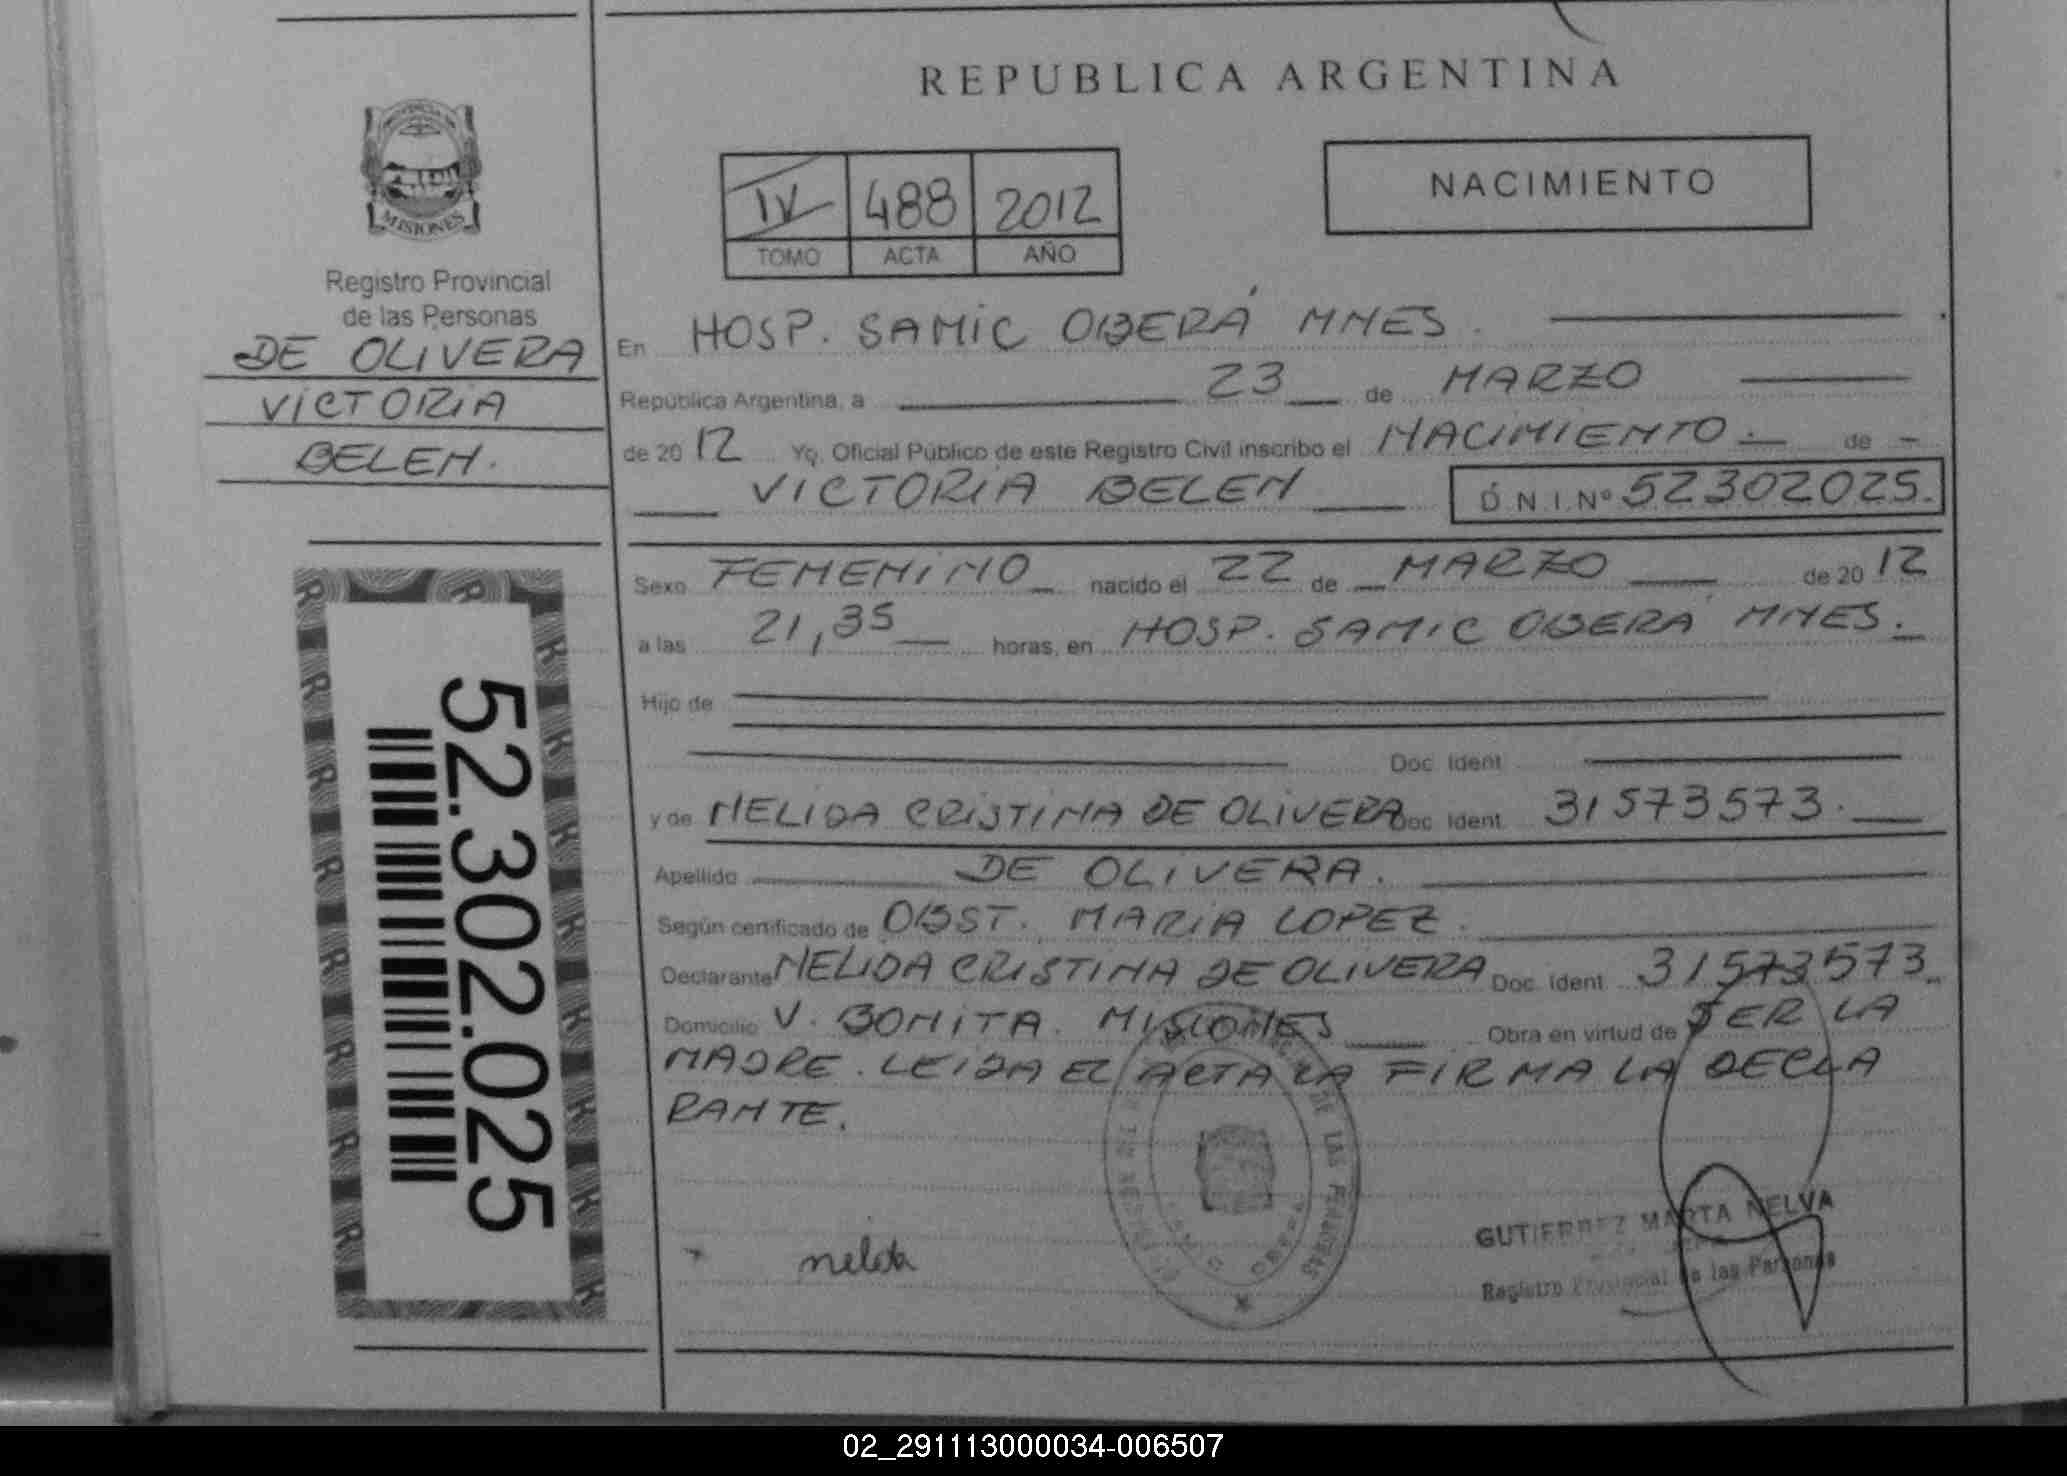 REPUBLICA ARGENTINA
MISIONES
Registro Provincial
de las Personas
DE OLIVERA
VICTORIA
BELEN.
52.302.025
IV 488 2012
TOMO ACTA AÑO
NACIMIENTO
En HOSP. SAMIC OBERÁ MNES.
República Argentina, a 23 de MARZO
de 2012 Yo, Oficial Público de este Registro Civil inscribo el NACIMIENTO. de
VICTORIA BELEN D.N.I.Nº 52302025.
Sexo FEMENINO nacido el 22 de MARZO de 2012
a las 21,35 horas, en HOSP. SAMIC OBERÁ MNES.
Hijo de
Doc. Ident.
y de NELIDA CRISTINA DE OLIVERA Doc. Ident. 31573573.
Apellido DE OLIVERA.
Según certificado de OBST. MARIA LOPEZ.
Declarante NELIDA CRISTINA DE OLIVERA Doc. Ident. 31573573
Domicilio V. BONITA. MISIONES Obra en virtud de SER LA
MADRE. LEIDA EL ACTA LA FIRMA LA DECLA
RANTE.
DE LAS PERSONAS
nelida
GUTIERREZ MARTA NELVA
Registro Provincial de las Personas
02_291113000034-006507